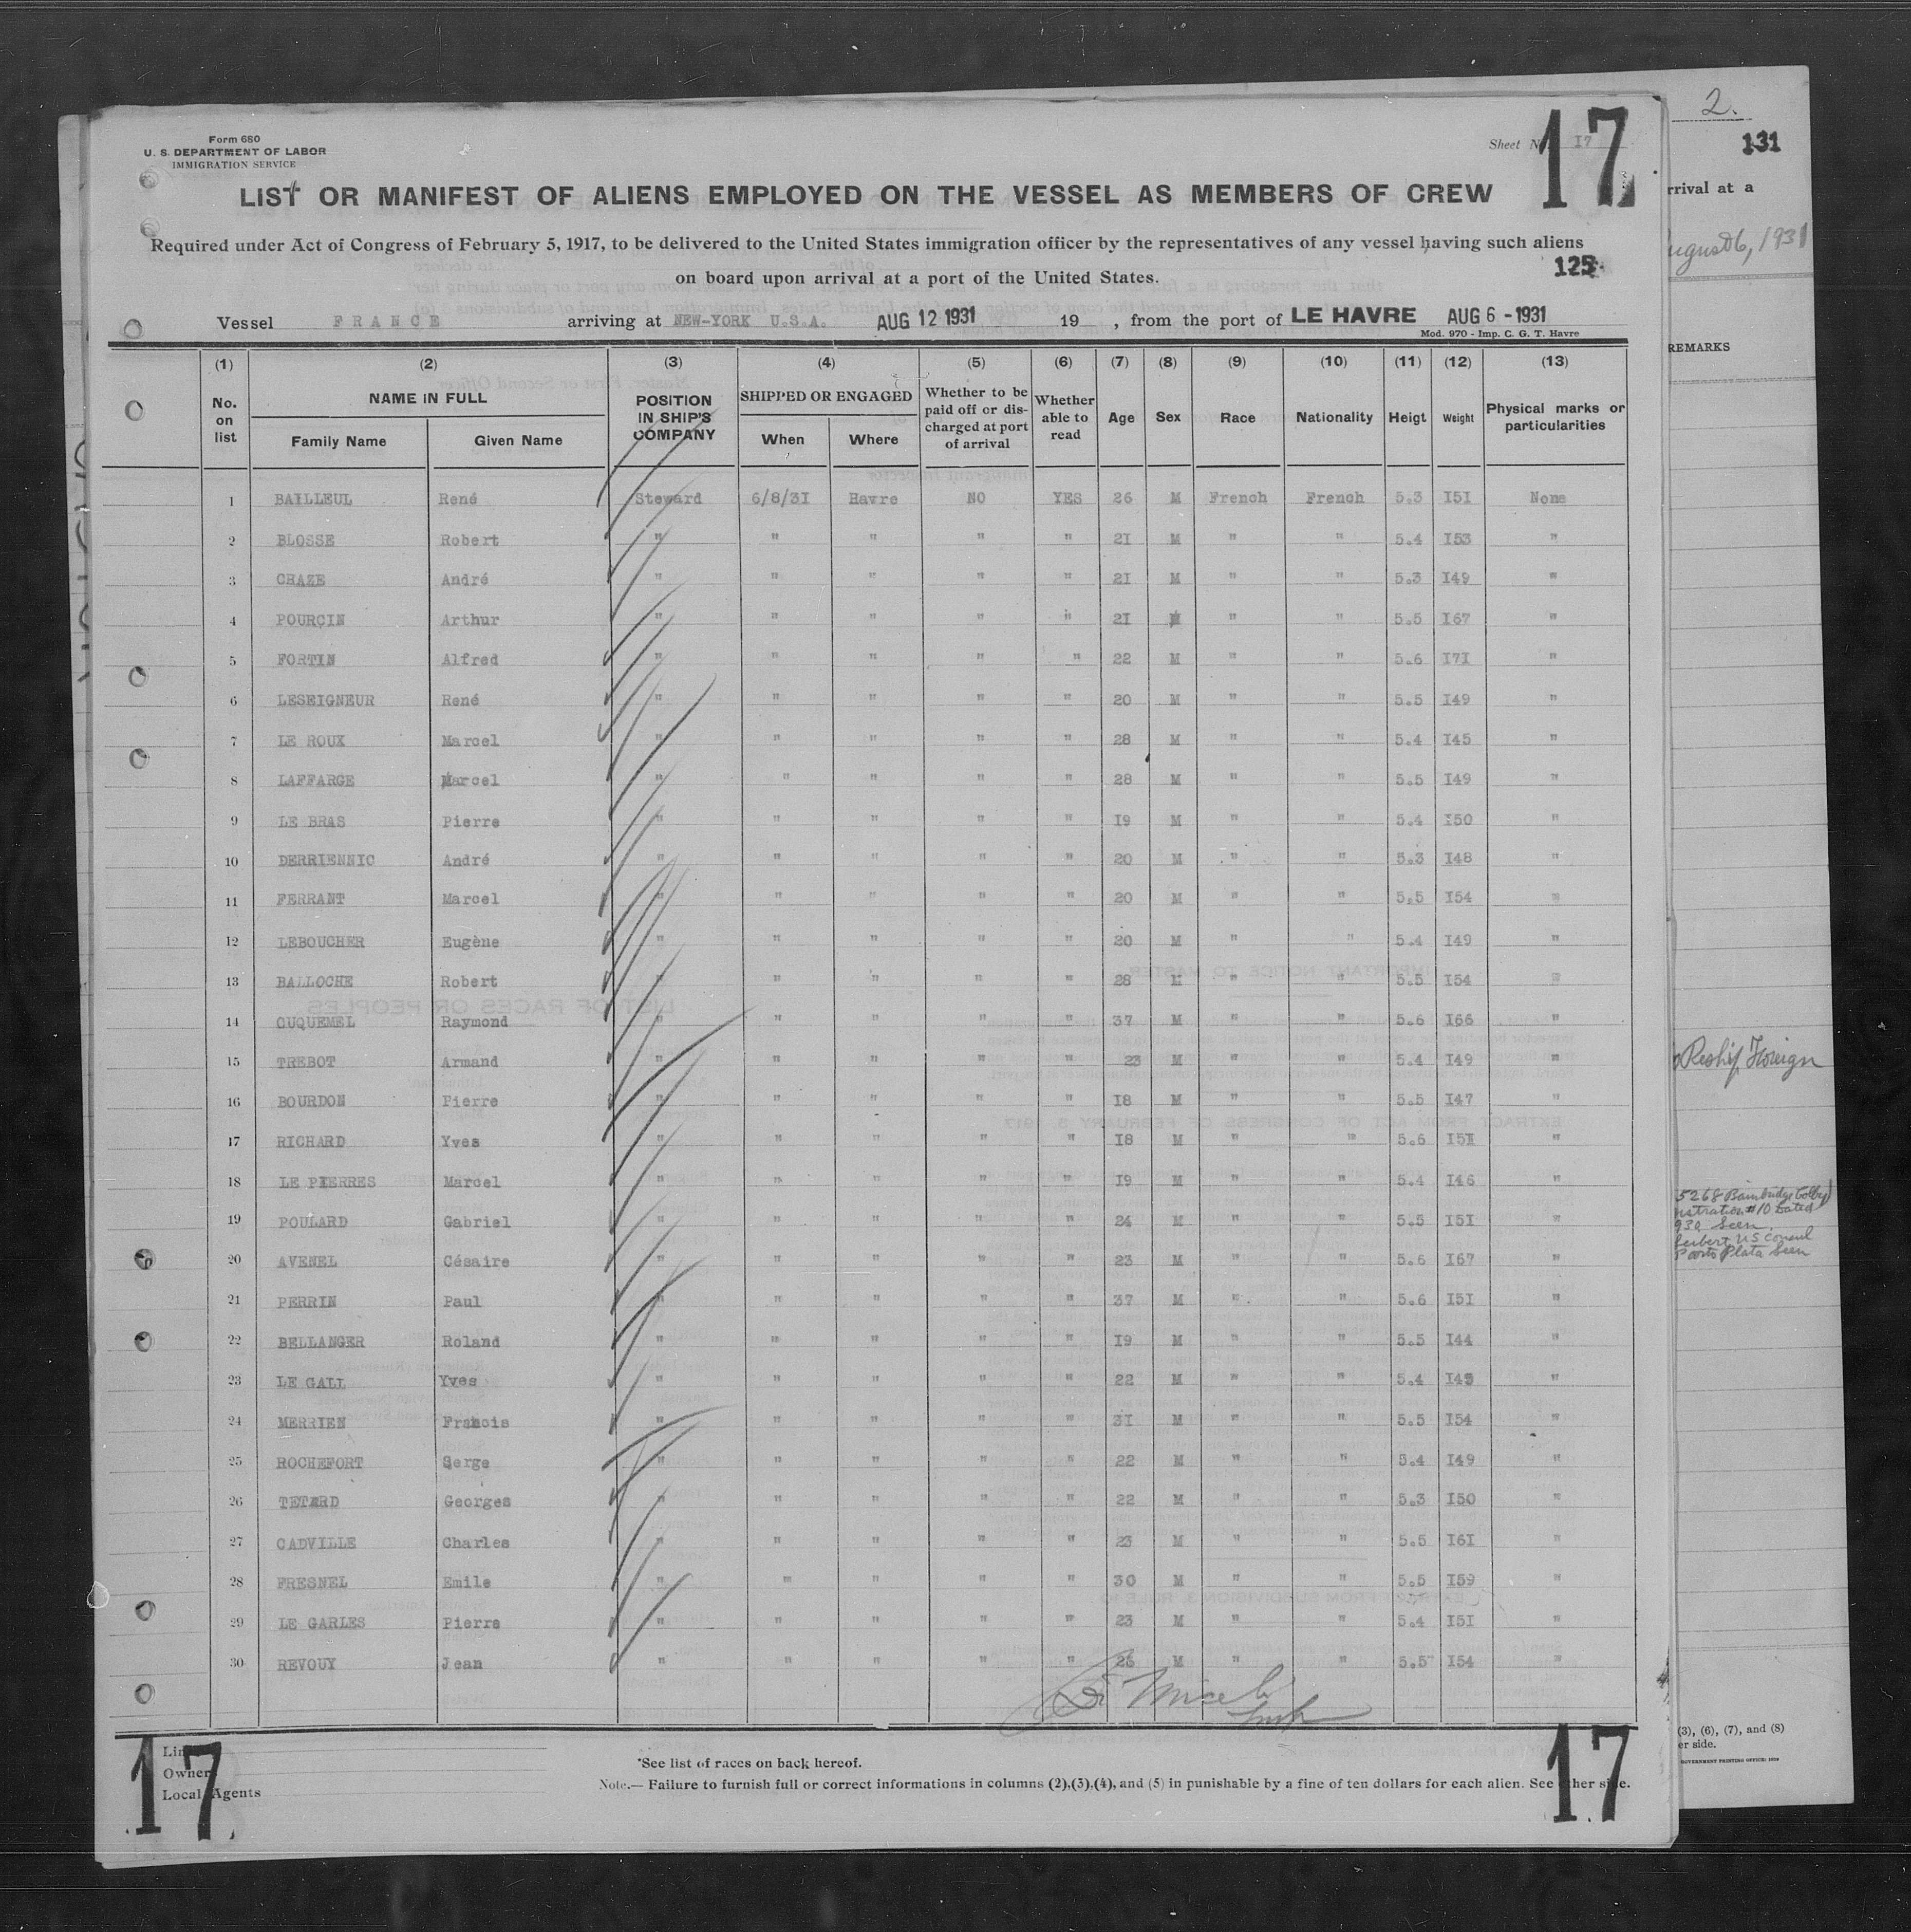 Form 680
U. S. DEPARTMENT OF LABOR
IMMIGRATION SERVICE
Sheet No. 17
17
LIST OR MANIFEST OF ALIENS EMPLOYED ON THE VESSEL AS MEMBERS OF CREW
Required under Act of Congress of February 5, 1917, to be delivered to the United States immigration officer by the representatives of any vessel having such aliens
on board upon arrival at a port of the United States.
125
Vessel FRANCE arriving at NEW-YORK U.S.A. AUG 12 1931 19 , from the port of LE HAVRE AUG 6 - 1931
Mod. 970 - Imp. C. G. T. Havre
(1) (2) (3) (4) (5) (6) (7) (8) (9) (10) (11) (12) (13)
No. on list NAME IN FULL Family Name Given Name POSITION IN SHIP'S COMPANY SHIPPED OR ENGAGED When Where Whether to be paid off or discharged at port of arrival Whether able to read Age Sex Race Nationality Heigt Weight Physical marks or particularities
1 BAILLEUL René Steward 6/8/31 Havre NO YES 26 M French French 5.3 I5I None
2 BLOSSE Robert " " " " " 2I M " " 5.4 I53 "
3 CHAZE André " " " " " 2I M " " 5.3 I49 "
4 POURCIN Arthur " " " " " 2I M " " 5.5 I67 "
5 FORTIN Alfred " " " " " 22 M " " 5.6 I7I "
6 LESEIGNEUR René " " " " " 20 M " " 5.5 I49 "
7 LE ROUX Marcel " " " " " 28 M " " 5.4 I45 "
8 LAFFARGE Marcel " " " " " 28 M " " 5.5 I49 "
9 LE BRAS Pierre " " " " " I9 M " " 5.4 I50 "
10 DERRIENNIC André " " " " " 20 M " " 5.3 I48 "
11 FERRANT Marcel " " " " " 20 M " " 5.5 I54 "
12 LEBOUCHER Eugène " " " " " 20 M " " 5.4 I49 "
13 BALLOCHE Robert " " " " " 28 M " " 5.5 I54 "
14 CUQUEMEL Raymond " " " " " 37 M " " 5.6 I66 "
15 TREBOT Armand " " " " " 23 M " " 5.4 I49 "
16 BOURDON Pierre " " " " " I8 M " " 5.5 I47 "
17 RICHARD Yves " " " " " I8 M " " 5.6 I5I "
18 LE PIERRES Marcel " " " " " I9 M " " 5.4 I46 "
19 POULARD Gabriel " " " " " 24 M " " 5.5 I5I "
20 AVENEL Césaire " " " " " 23 M " " 5.6 I67 "
21 PERRIN Paul " " " " " 37 M " " 5.6 I5I "
22 BELLANGER Roland " " " " " I9 M " " 5.5 I44 "
23 LE GALL Yves " " " " " 22 M " " 5.4 "
24 MERRIEN Francis " " " " " 3I M " " 5.5 I54 "
25 ROCHEFORT Serge " " " " " 22 M " " 5.4 I49 "
26 TETARD Georges " " " " " 22 M " " 5.3 I50 "
27 CADVILLE Charles " " " " " 23 M " " 5.5 I6I "
28 FRESNEL Emile " " " " " 30 M " " 5.5 I59 "
29 LE GARLES Pierre " " " " " 23 M " " 5.4 I5I "
30 REVOUY Jean " " " " " M " " 5.5 I54 "
Line
Owner
Local Agents
17
*See list of races on back hereof.
Note.— Failure to furnish full or correct informations in columns (2),(3),(4), and (5) in punishable by a fine of ten dollars for each alien. See other side.
17
2.
131
rrival at a
ugust 6, 1931
REMARKS
Reship Foreign
5268 Bainbridge Colby
#10 dated
930 Seen
US Consul
Porto Plata Seen
(3), (6), (7), and (8)
er side.
GOVERNMENT PRINTING OFFICE